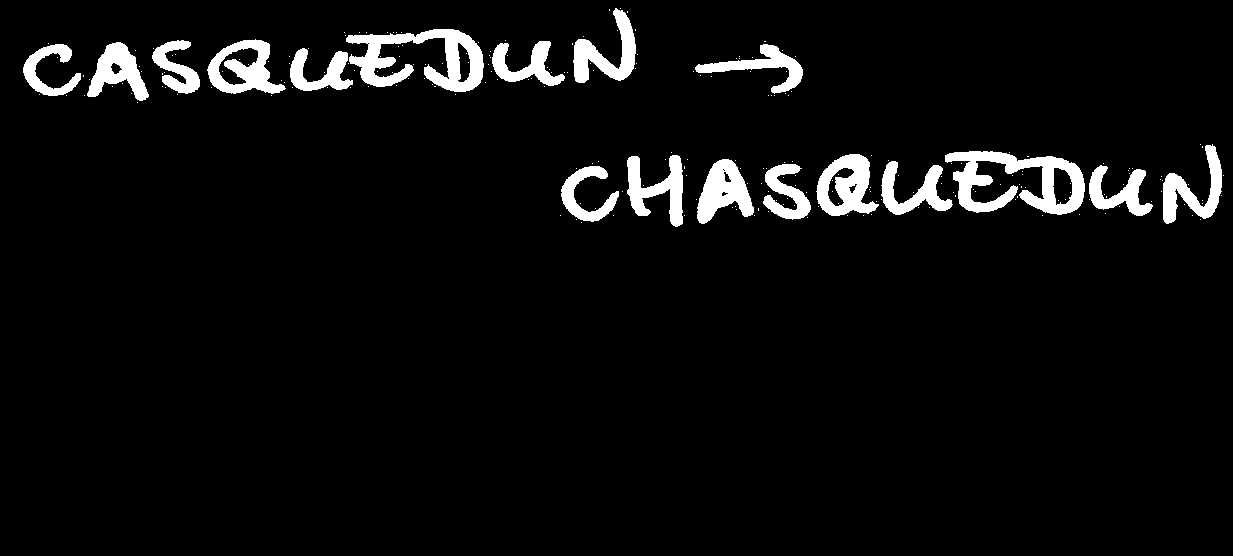 CASQUEDUN →
CHASQUEDUN